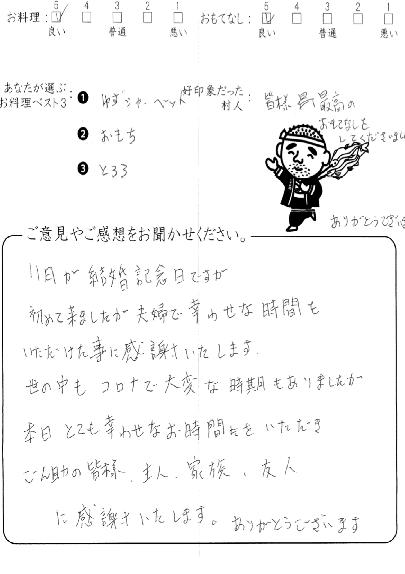 お料理: 5 4 3 2 1 おもてなし: 5 4 3 2 1
良い 普通 悪い 良い 普通 悪い
あなたが選ぶ
お料理ベスト3: ❶ ゆずシャーベット
❷ おもち
❸ とろろ
好印象だった
村人: 皆様 最高の
おもてなしを
してくださいました
ありがとうございます
ご意見やご感想をお聞かせください。
11日が結婚記念日ですが
初めて来ましたが夫婦で幸わせな時間を
いただけた事に感謝いたします。
世の中も コロナで大変な時期もありましたが
本日 とても幸わせなお時間をいただき
ごん助の皆様、主人、家族、友人
に感謝いたします。ありがとうございます